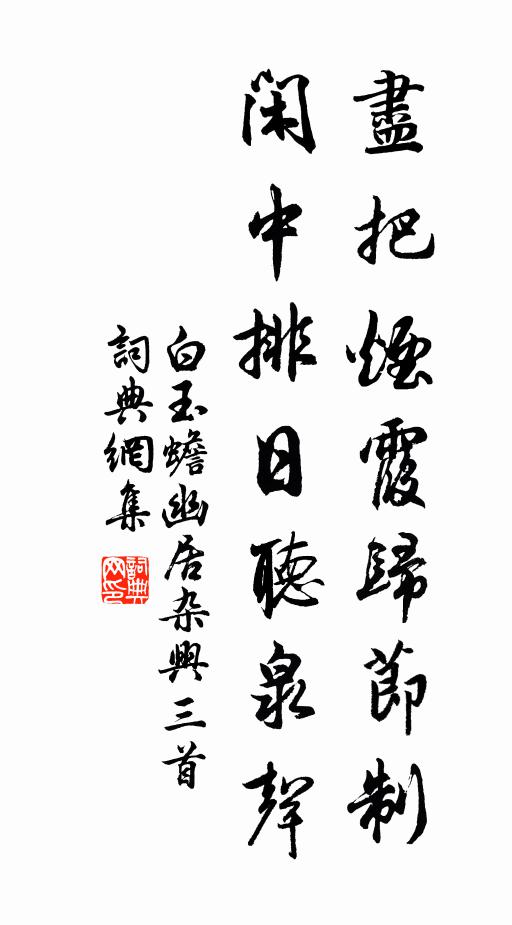 盡把煙霞歸節制
閑中排日聽泉聲
白玉蟾幽居杂興三首
詞典網集
詞典網印